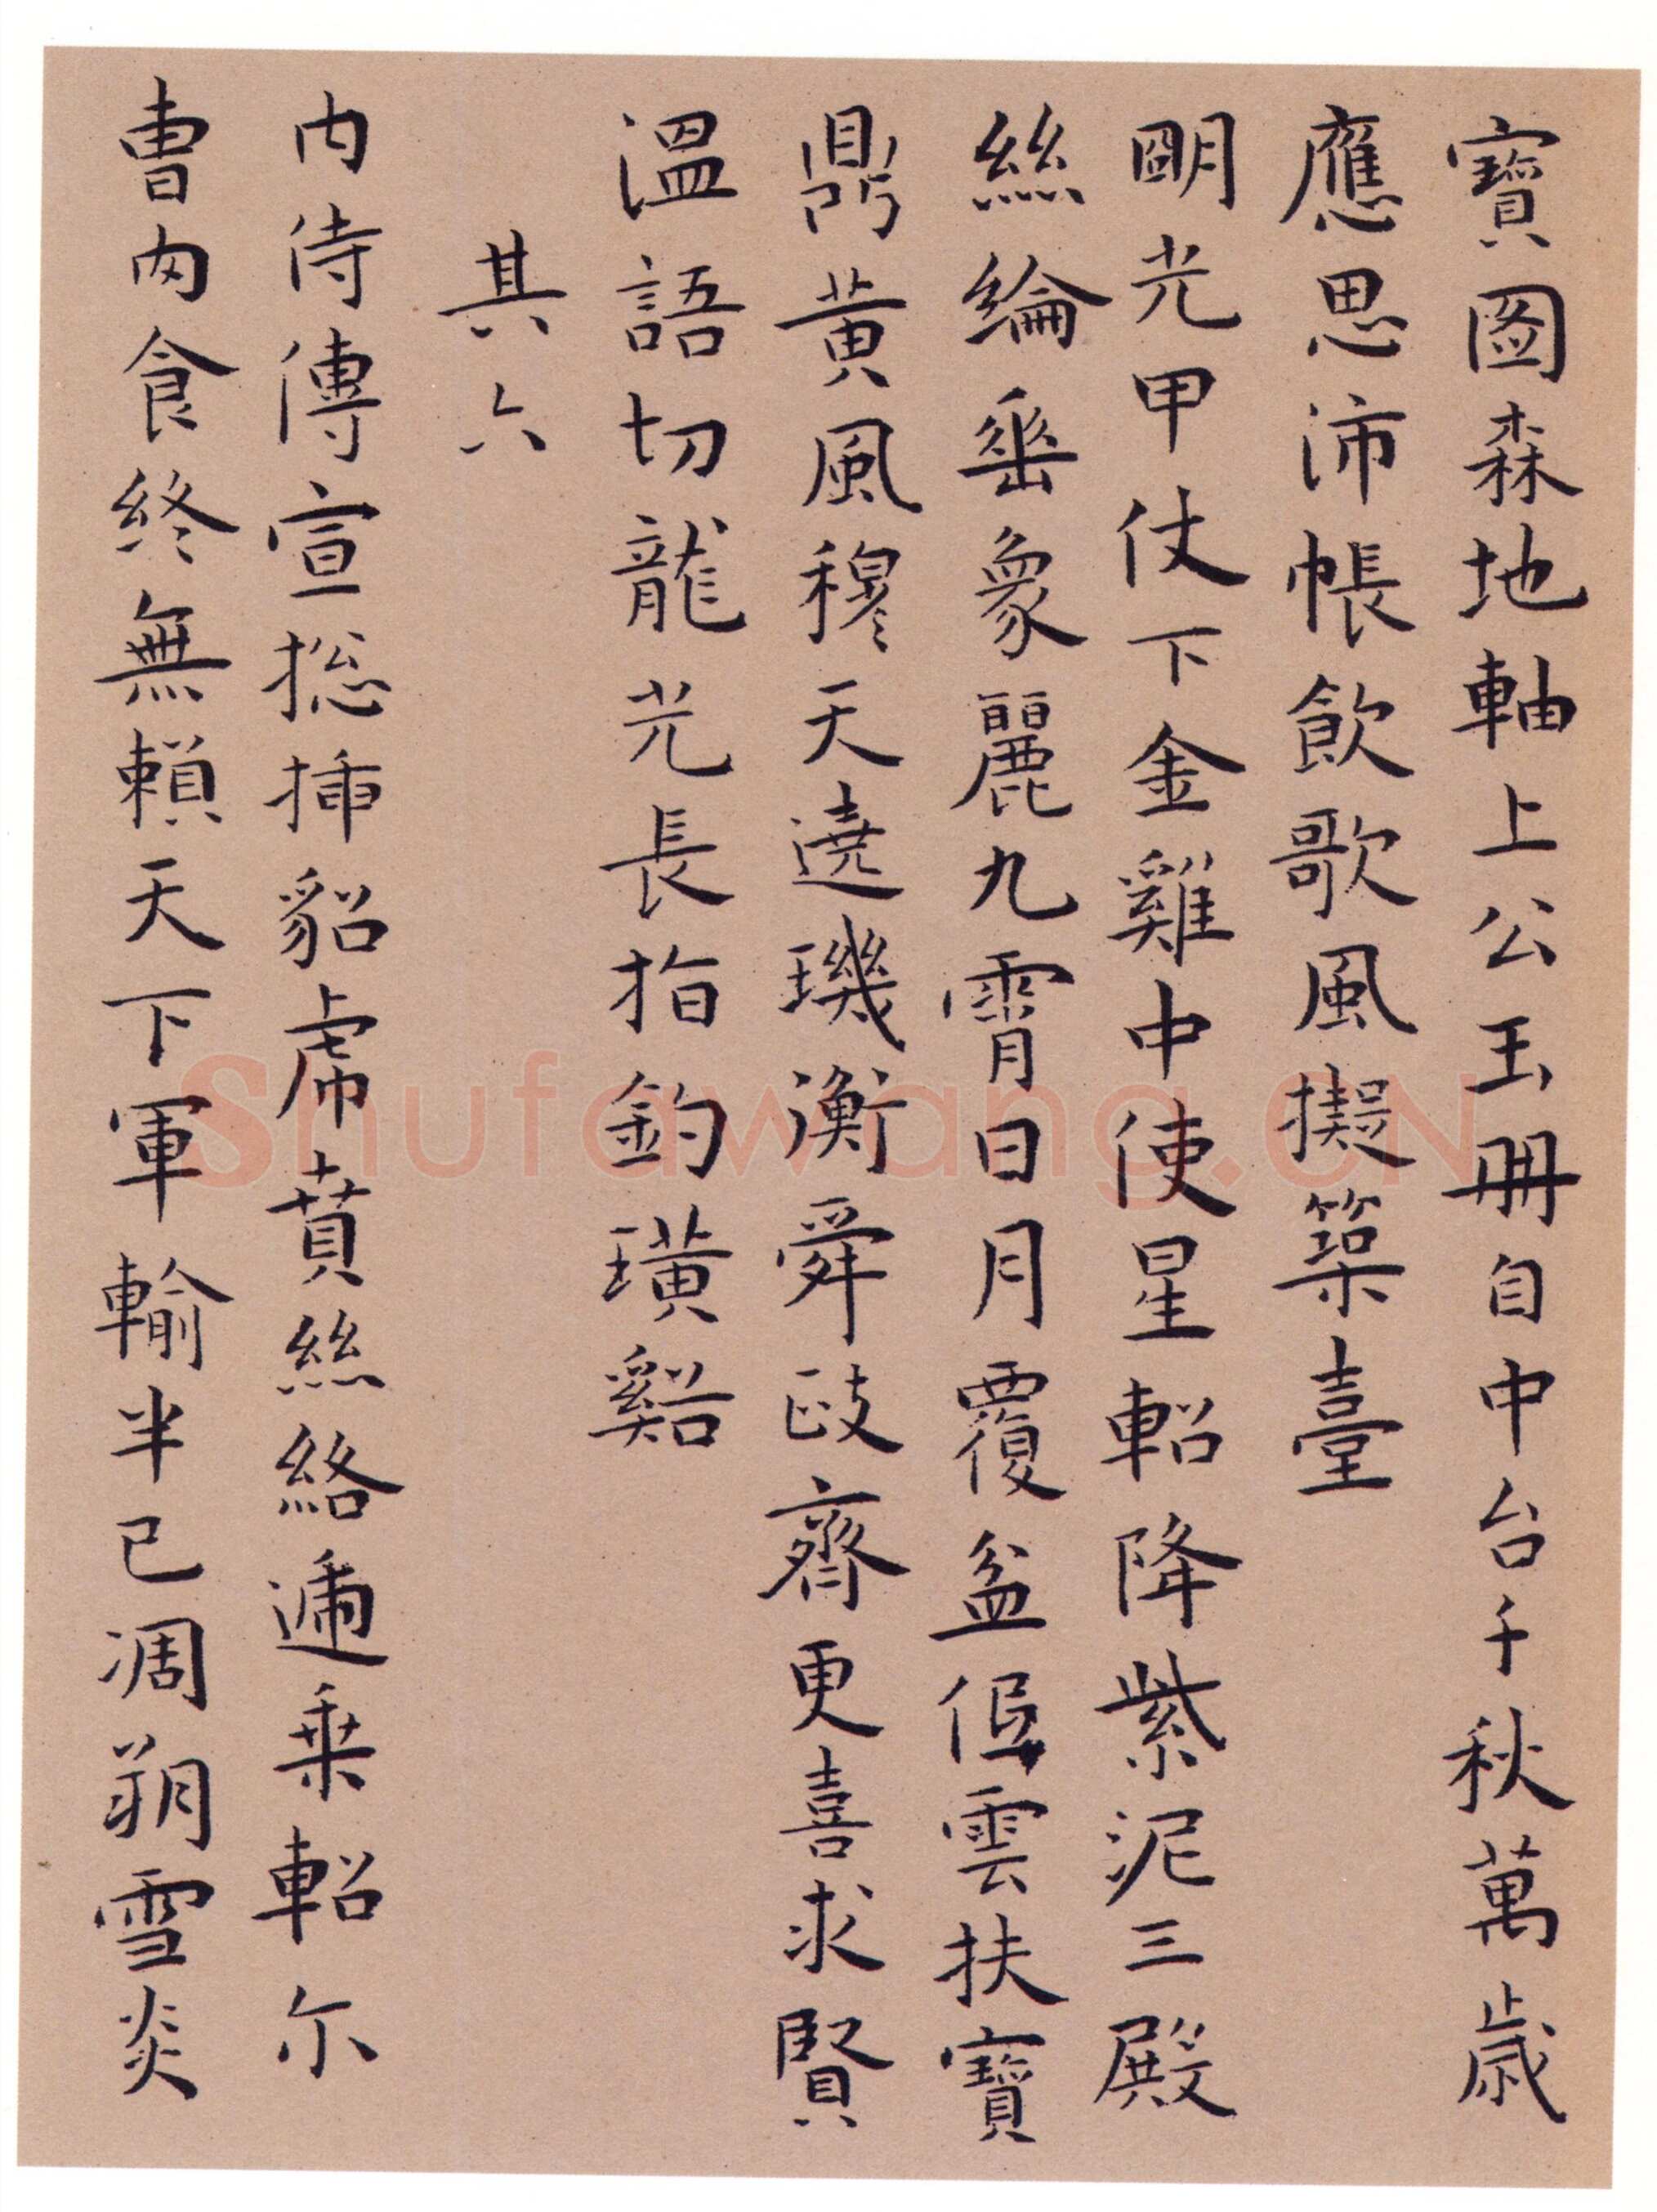 寶圖森地軸上公玉冊自中台千秋萬歲
應思沛帳飲歌風擬築臺
明光甲仗下金雞中使星軺降紫泥三殿
絲綸垂象麗九霄日月覆盆低雲扶寶
鼎黃風穆天遶璣衡舜政齊更喜求賢
溫語切龍光長指釣璜谿
其六
內侍傳宣摠插貂虎賁絲絡遞乘軺尔
曹肉食終無賴天下軍輸半已凋朔雪炎
Shufawang.CN